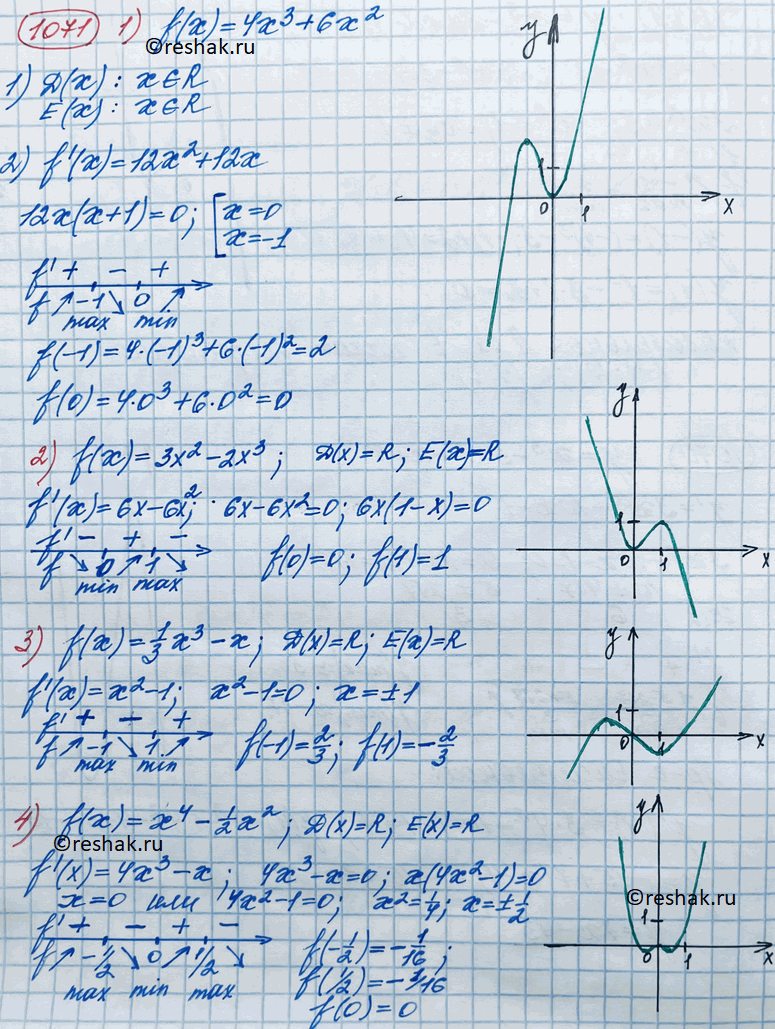 1071 1) f(x)=4x³+6x²
©reshak.ru
1) D(x): x∈R
E(x): x∈R
2) f'(x)=12x²+12x
12x(x+1)=0; [x=0
x=-1
f' + - +
f ↗ -1 ↘ 0 ↗
max min
f(-1)=4·(-1)³+6·(-1)²=2
f(0)=4·0³+6·0²=0
y
1
0 1 x
2) f(x)=3x²-2x³; D(x)=R; E(x)=R
f'(x)=6x-6x²; 6x-6x²=0; 6x(1-x)=0
f' - + -
f ↘ 0 ↗ 1 ↘ f(0)=0; f(1)=1
min max
y
1
0 1 x
3) f(x)=1/3x³-x; D(x)=R; E(x)=R
f'(x)=x²-1; x²-1=0; x=±1
f' + - +
f ↗ -1 ↘ 1 ↗ f(-1)=2/3; f(1)=-2/3
max min
y
1
0 1 x
4) f(x)=x⁴-1/2x²; D(x)=R; E(x)=R
©reshak.ru
f'(x)=4x³-x; 4x³-x=0; x(4x²-1)=0
x=0 или 4x²-1=0; x²=1/4; x=±1/2
f' + - + -
f ↗ -1/2 ↘ 0 ↗ 1/2 ↘
max min max
f(-1/2)=-1/16;
f(1/2)=-1/16
f(0)=0
y
©reshak.ru
1
0 1 x